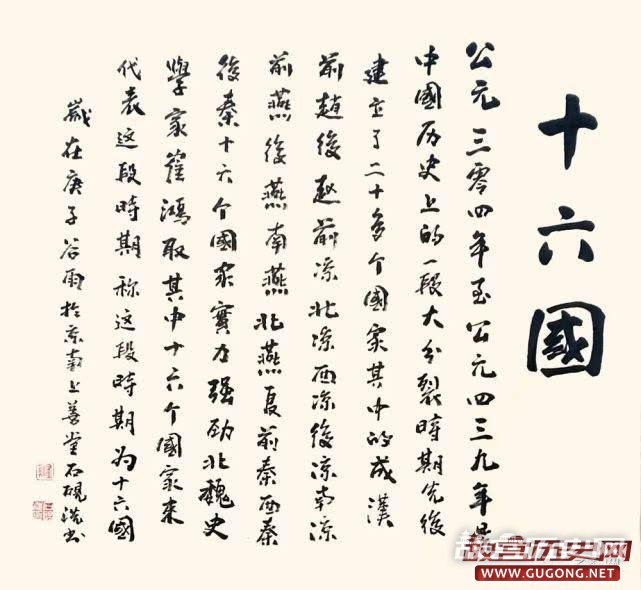 十六國
公元三零四年至公元四三九年是
中國历史上的一段大分裂時期先後
建立了二十多个國家其中的成漢
前趙後趙前凉北凉西凉後凉南凉
前燕後燕南燕北燕夏前秦西秦
後秦十六个國家實力强劲北魏史
學家崔鴻取其中十六个國家来
代表这段時期称这段時期为十六國
歲在庚子谷雨於京南上善堂石硯洪书
故宫历史网
WWW.GUGONG.NET